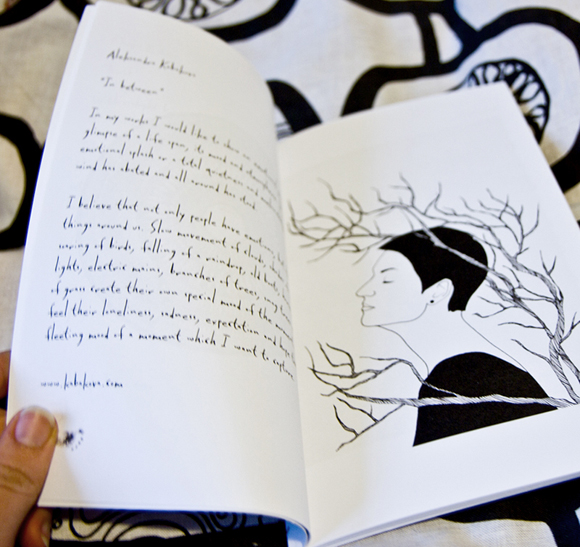 Aleksandra Kabakova
"In between"
In my works I would like to show an
glimpse of a life span, its mood and
emotional splash or a total quietness and
wind has abated and all around has
I believe that not only people have emotions,
things around us. Slow movement of clouds,
of birds, falling of a raindrop, old
lights, electric mains, branches of trees,
of grass create their own special mood of the
feel their loneliness, sadness, expectation and
fleeting mood of a moment which I want to capture
www.kabakova.com